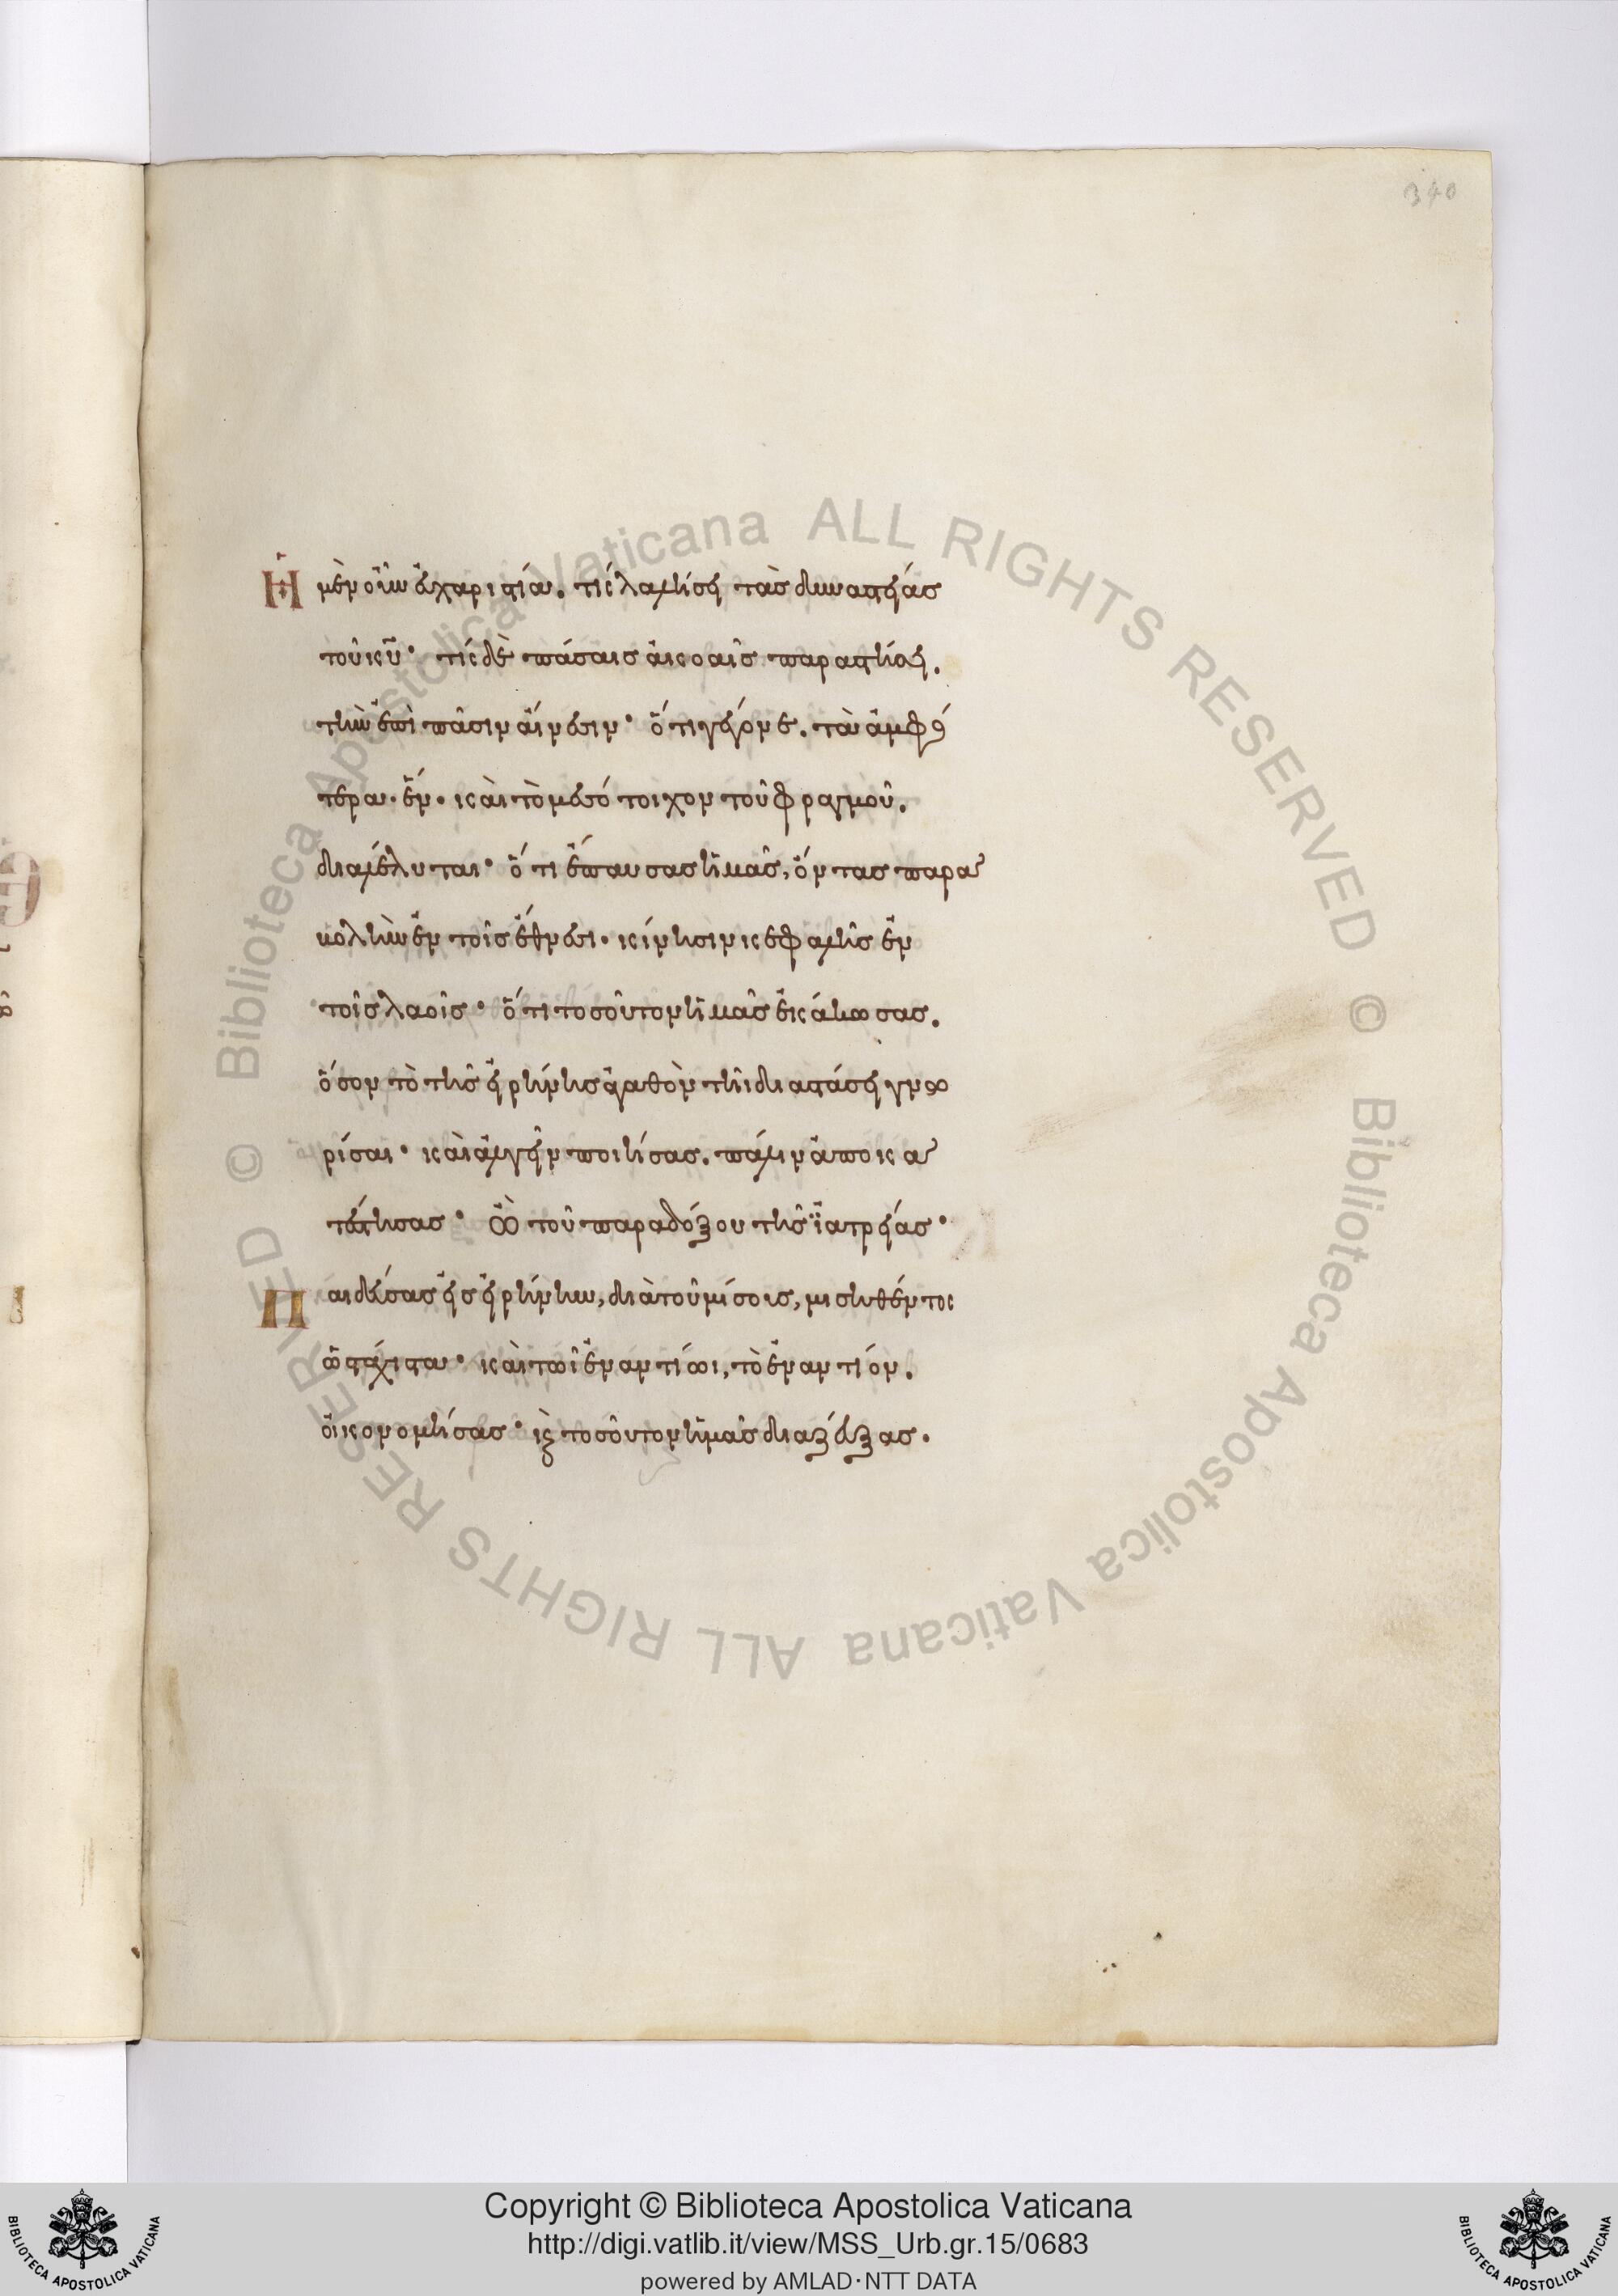 340
Ἡ μὲν οὖν εὐχαριστία. τίς λαλήσει τὰς δυναστείας
τοῦ κυ· τίς δὲ πάσαις ἀκοαῖς παραστήσει.
τὴν ἐπὶ πᾶσιν αἴνεσιν· ὅτι γέγονε. τὰ ἀμφό
τερα. ἕν. καὶ τὸ μεσότοιχον τοῦ φραγμοῦ.
διαλέλυται· ὅτι ἔπαυσας ἡμᾶς, ὄντας παρα
βολὴν ἐν τοῖς ἔθνεσι. κίνησιν κεφαλῆς ἐν
τοῖς λαοῖς· ὅτι τοσοῦτον ἡμᾶς ἐκάκωσας.
ὅσον τὸ τῆς εἰρήνης ἀγαθὸν τῆι διαστάσει γνω
ρίσαι· καὶ ἀλγεῖν ποιήσας. πάλιν ἀποκα
τέστησας· ὢ τοῦ παραδόξου τῆς ἰατρείας·
Παιδεύσας εἰς εἰρήνην, διὰ τοῦ μίσους, μισηθέντος
ὡς τάχιστα· καὶ τῶι ἐναντίωι, τὸ ἐναντίον.
οἰκονομήσας· κ τοσοῦτον ἡμᾶς διαζεύξας.
Copyright © Biblioteca Apostolica Vaticana
http://digi.vatlib.it/view/MSS_Urb.gr.15/0683
powered by AMLAD·NTT DATA
BIBLIOTECA APOSTOLICA VATICANA
BIBLIOTECA APOSTOLICA VATICANA
© Biblioteca Apostolica Vaticana ALL RIGHTS RESERVED
© Biblioteca Apostolica Vaticana ALL RIGHTS RESERVED